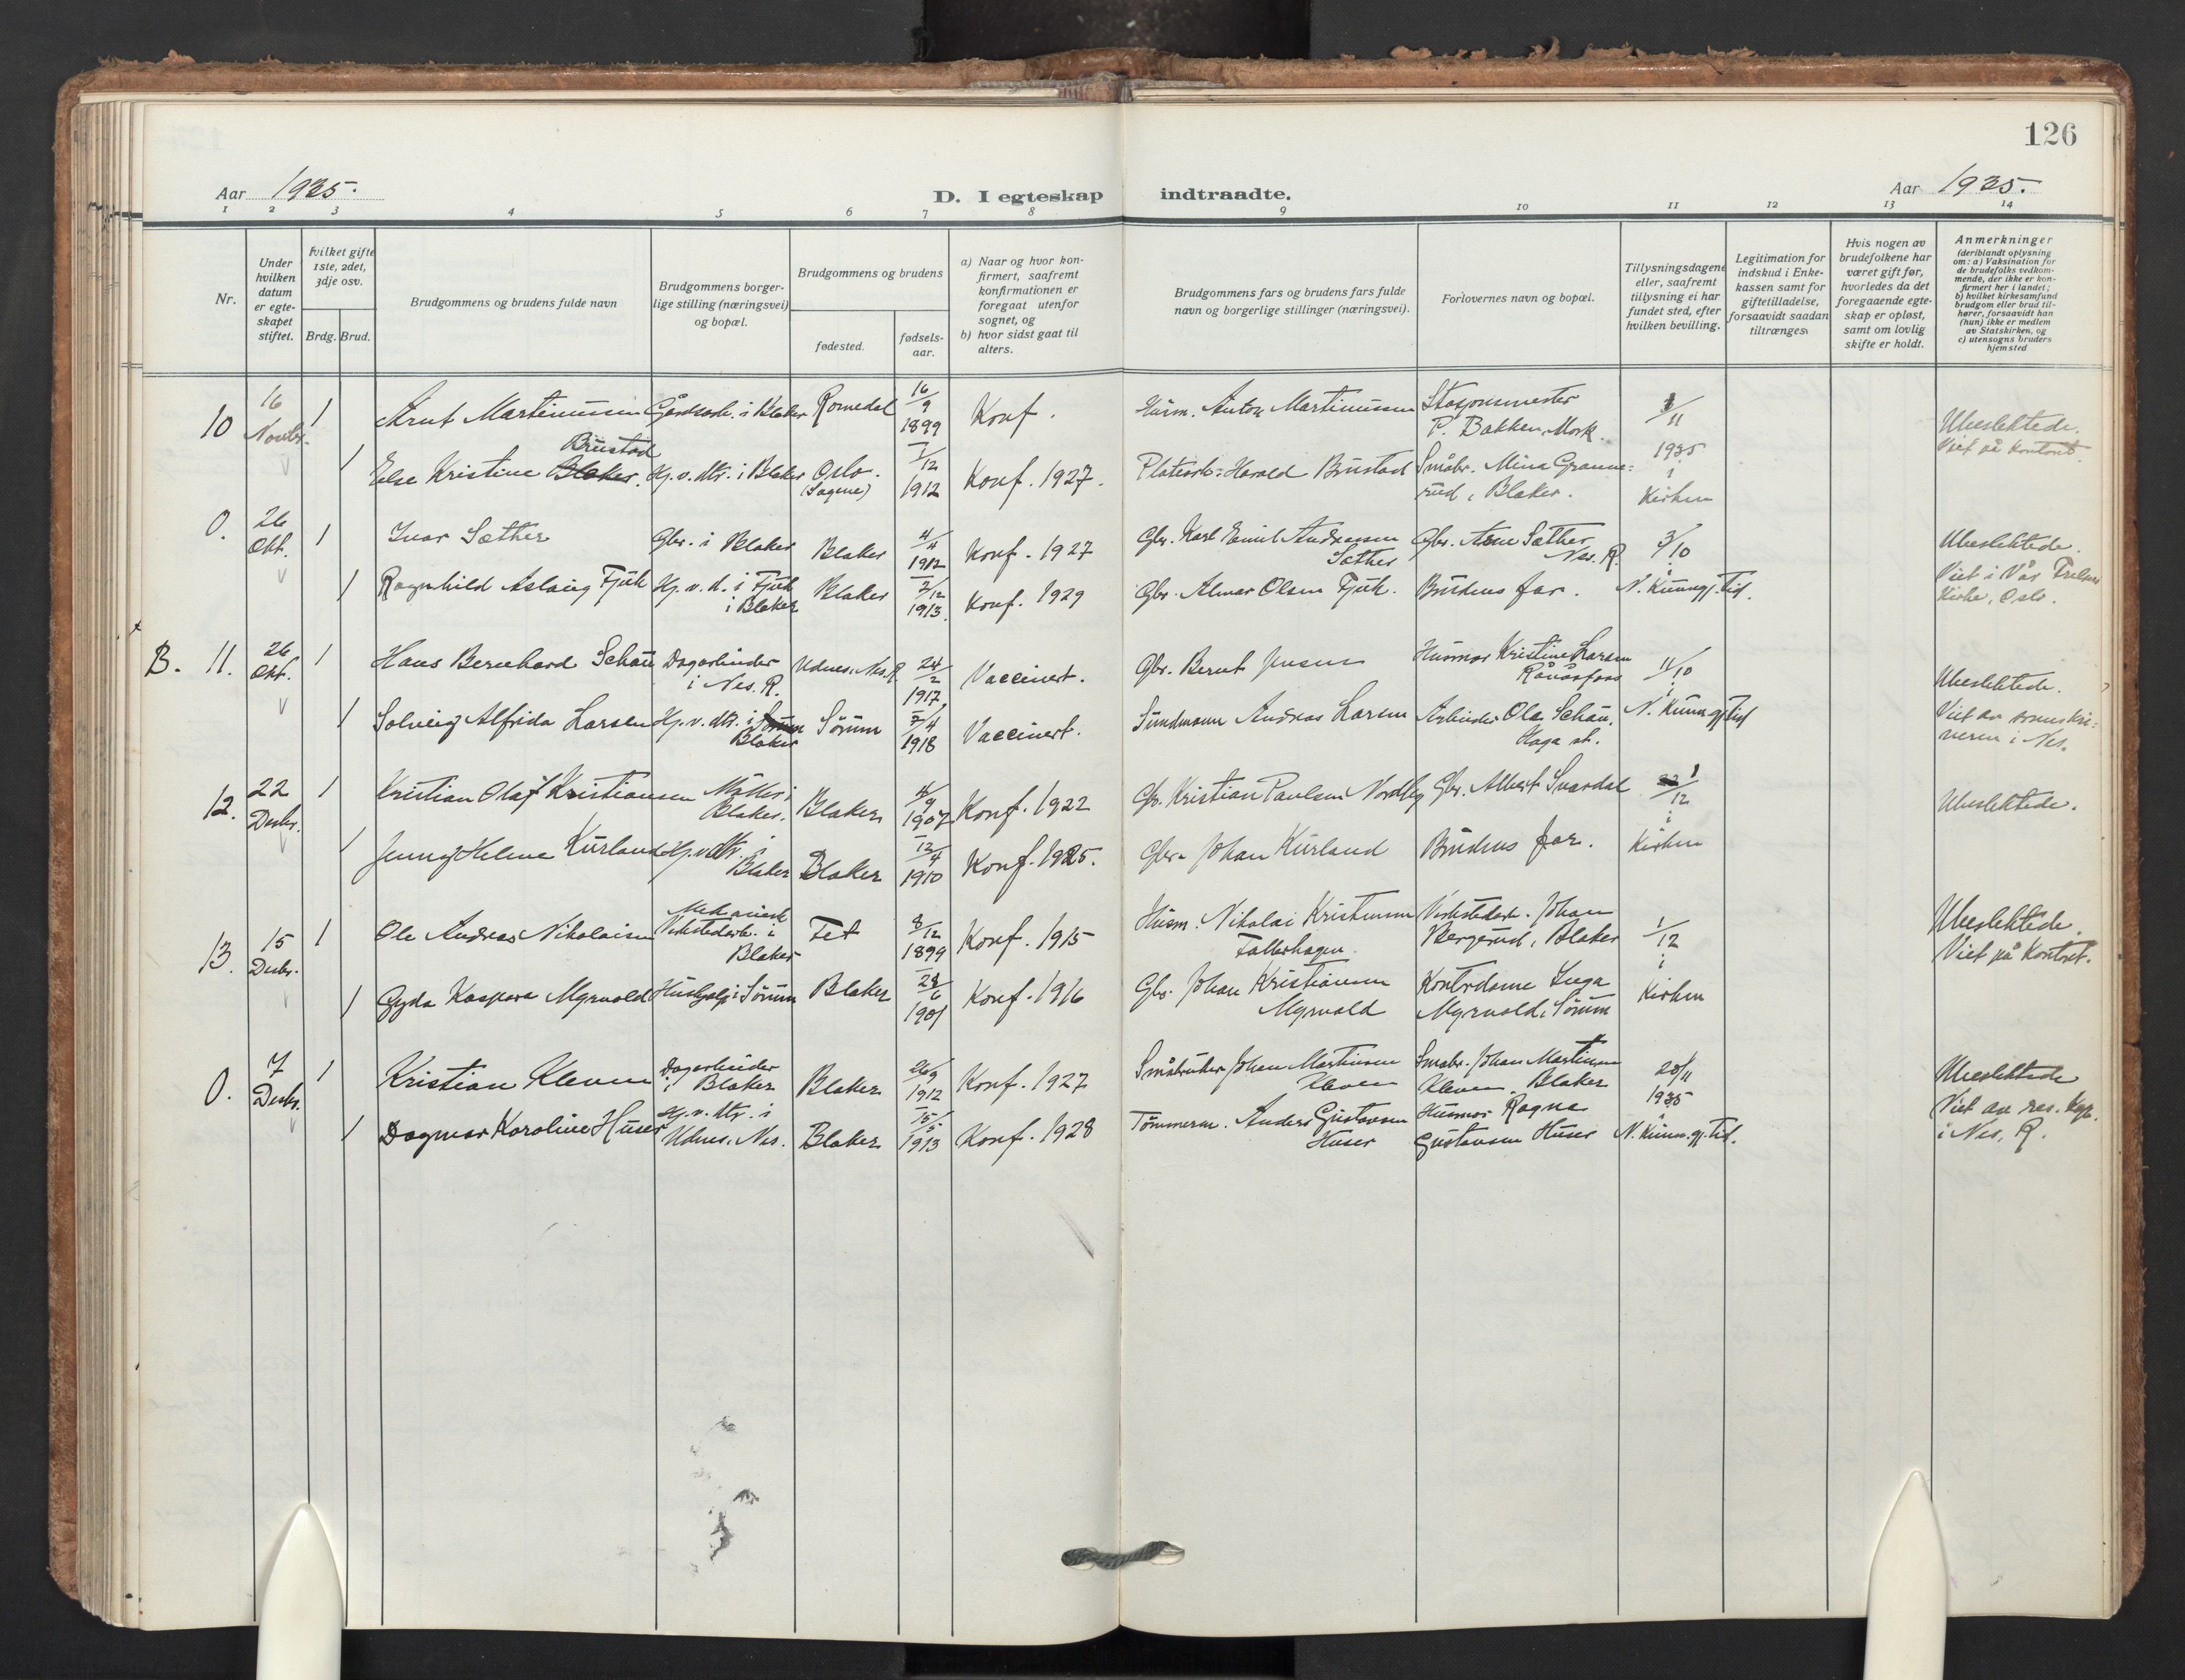 126
Aar 1935.
D. I egteskap indtraadte.
Aar 1935.
1 2 3 4 5 6 7 8 9 10 11 12 13 14
Nr.
Under hvilken datum er egteskapet stiftet.
hvilket gifte 1ste, 2det, 3dje osv.
Brdg. Brud.
Brudgommens og brudens fulde navn
Brudgommens borgerlige stilling (næringsvei) og bopæl.
Brudgommens og brudens
fødested.
fødselsaar.
a) Naar og hvor konfirmert, saafremt konfirmationen er foregaat utenfor sognet, og
b) hvor sidst gaat til alters.
Brudgommens fars og brudens fars fulde navn og borgerlige stillinger (næringsvei).
Forlovernes navn og bopæl.
Tillysningsdagene eller, saafremt tillysning ei har fundet sted, efter hvilken bevilling.
Legitimation for indskud i Enkekassen samt for giftetilladelse, forsaavidt saadan tiltrænges.
Hvis nogen av brudefolkene har været gift før, hvorledes da det foregaaende egteskap er opløst, samt om lovlig skifte er holdt.
Anmerkninger (deriblandt oplysning om: a) Vaksination for de brudefolks vedkommende, der ikke er konfirmert her i landet; b) hvilket kirkesamfund brudgom eller brud tilhører, forsaavidt han (hun) ikke er medlem av Statskirken, og c) utensogns bruders hjemsted
10 16 Novbr. 1 Arnt Martinussen Gårdsarb. i Blaker Romedal 16/9 1899 Konf. Husm. Anton Martinussen Stasjonsmester P. Bakken, Mork. 1/11 1935 i Kirken Ubeslektede. Viet på kontoret.
1 Else Kristine Blaker. Brustad Hj.v. dtr. i Blaker Oslo. (Sagene) 1/12 1912 Konf. 1927. Platearb. Harald Brustad Småbr. Mina Granerud, Blaker.
0. 26 Okt. 1 Ivar Sæther Gbr. i Blaker Blaker 4/4 1912 Konf. 1927 Gbr. Karl Emil Andreassen Sæther Gbr. Arne Sæther Nes. R. 3/10 N. Kunngj. Tid. Ubeslektede. Viet i Vår Frelsers Kirke, Oslo.
1 Ragnhild Aslaug Fjuk Hj. v. d. i Fjuk i Blaker Blaker 2/12 1913. Konf. 1929 Gbr. Almar Olsen Fjuk. Brudens far.
B. 11. 26 Okt. 1 Hans Bernhard Schau Dagarbeider i Nes. R. Udnes, Nes. R. 24/2 1917 Vaccinert. Gbr. Bernt Jensen Husmor Kristine Larsen Rånåsfoss 11/10 i N. Kunngj. Tid Ubeslektede. Viet av sorenskriveren i Nes.
1 Solveig Alfrida Larsen Hj.v. dtr. i Sørum Blaker Sørum 7/4 1918 Vaccinert. Sundmann Andreas Larsen Arbeider Ola Schau, Haga st.
12. 22 Desbr. 1 Kristian Olaf Kristiansen Møller i Blaker. Blaker 4/9 1907 Konf. 1922 Gbr. Kristian Paulsen Nordby Gbr. Albert Svardal 1/12 i Kirken Ubeslektede.
1 Jenny Helene Kurland Hj.v. dtr. i Blaker Blaker 12/4 1910 Konf. 1925. Gbr. Johan Kurland Brudens far.
13. 15 Desbr. 1 Ole Andreas Nikolaisen Mekanisk Verkstedarb. i Blaker Fet 8/12 1899 Konf. 1915 Husm. Nikolai Kristensen Falkerhagen. Verkstedarb. Johan Bergerud, Blaker 1/12 i Kirken Ubeslektede. Viet på Kontoret.
1 Gyda Kaspara Myrvold Hushjelp i Sørum Blaker 28/6 1901 Konf. 1916 Gbr. Johan Kristiansen Myrvold Kontordame Inga Myrvold, Sørum
0. 7 Desbr. 1 Kristian Kleven Dagarbeider i Blaker Blaker 26/9 1912 Konf. 1927 Småbruker Johan Martinsen Kleven Småbr. Johan Martinsen Kleven, Blaker 20/11 1935 N. Kunngj. Tid. Ubeslektede Viet av res. kap. i Nes, R.
1 Dagmar Karoline Huser Hj. v. dtr. i Udnes, Nes. Blaker 15/5 1913 Konf. 1928 Tømmerm. Anders Gustavsen Huser Husmor Ragna Gustavsen Huser